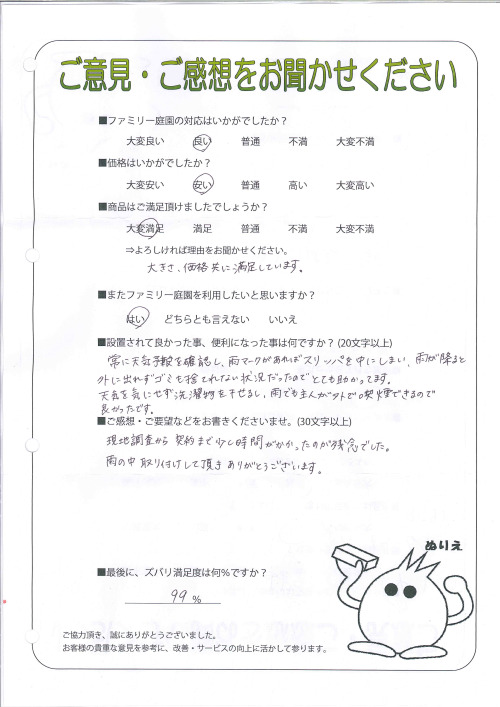 ご意見・ご感想をお聞かせください
■ファミリー庭園の対応はいかがでしたか?
大変良い 良い 普通 不満 大変不満
■価格はいかがでしたか?
大変安い 安い 普通 高い 大変高い
■商品はご満足頂けましたでしょうか?
大変満足 満足 普通 不満 大変不満
⇒よろしければ理由をお聞かせください。
大きさ、価格共に満足しています。
■またファミリー庭園を利用したいと思いますか?
はい どちらとも言えない いいえ
■設置されて良かった事、便利になった事は何ですか? (20文字以上)
常に天気予報を確認し、雨マークがあればスリッパを中にしまい、雨が降ると
外に出れずゴミも捨てれない状況だったのでとても助かってます。
天気を気にせず洗濯物を干せるし、雨でも主人が外で喫煙できるので
良かったです。
■ご感想・ご要望などをお書きくださいませ。(30文字以上)
現地調査から契約まで少し時間がかかったのが残念でした。
雨の中取り付けして頂きありがとうございます。
ぬりえ
■最後に、ズバリ満足度は何%ですか?
99%
ご協力頂き、誠にありがとうございました。
お客様の貴重な意見を参考に、改善・サービスの向上に活かして参ります。